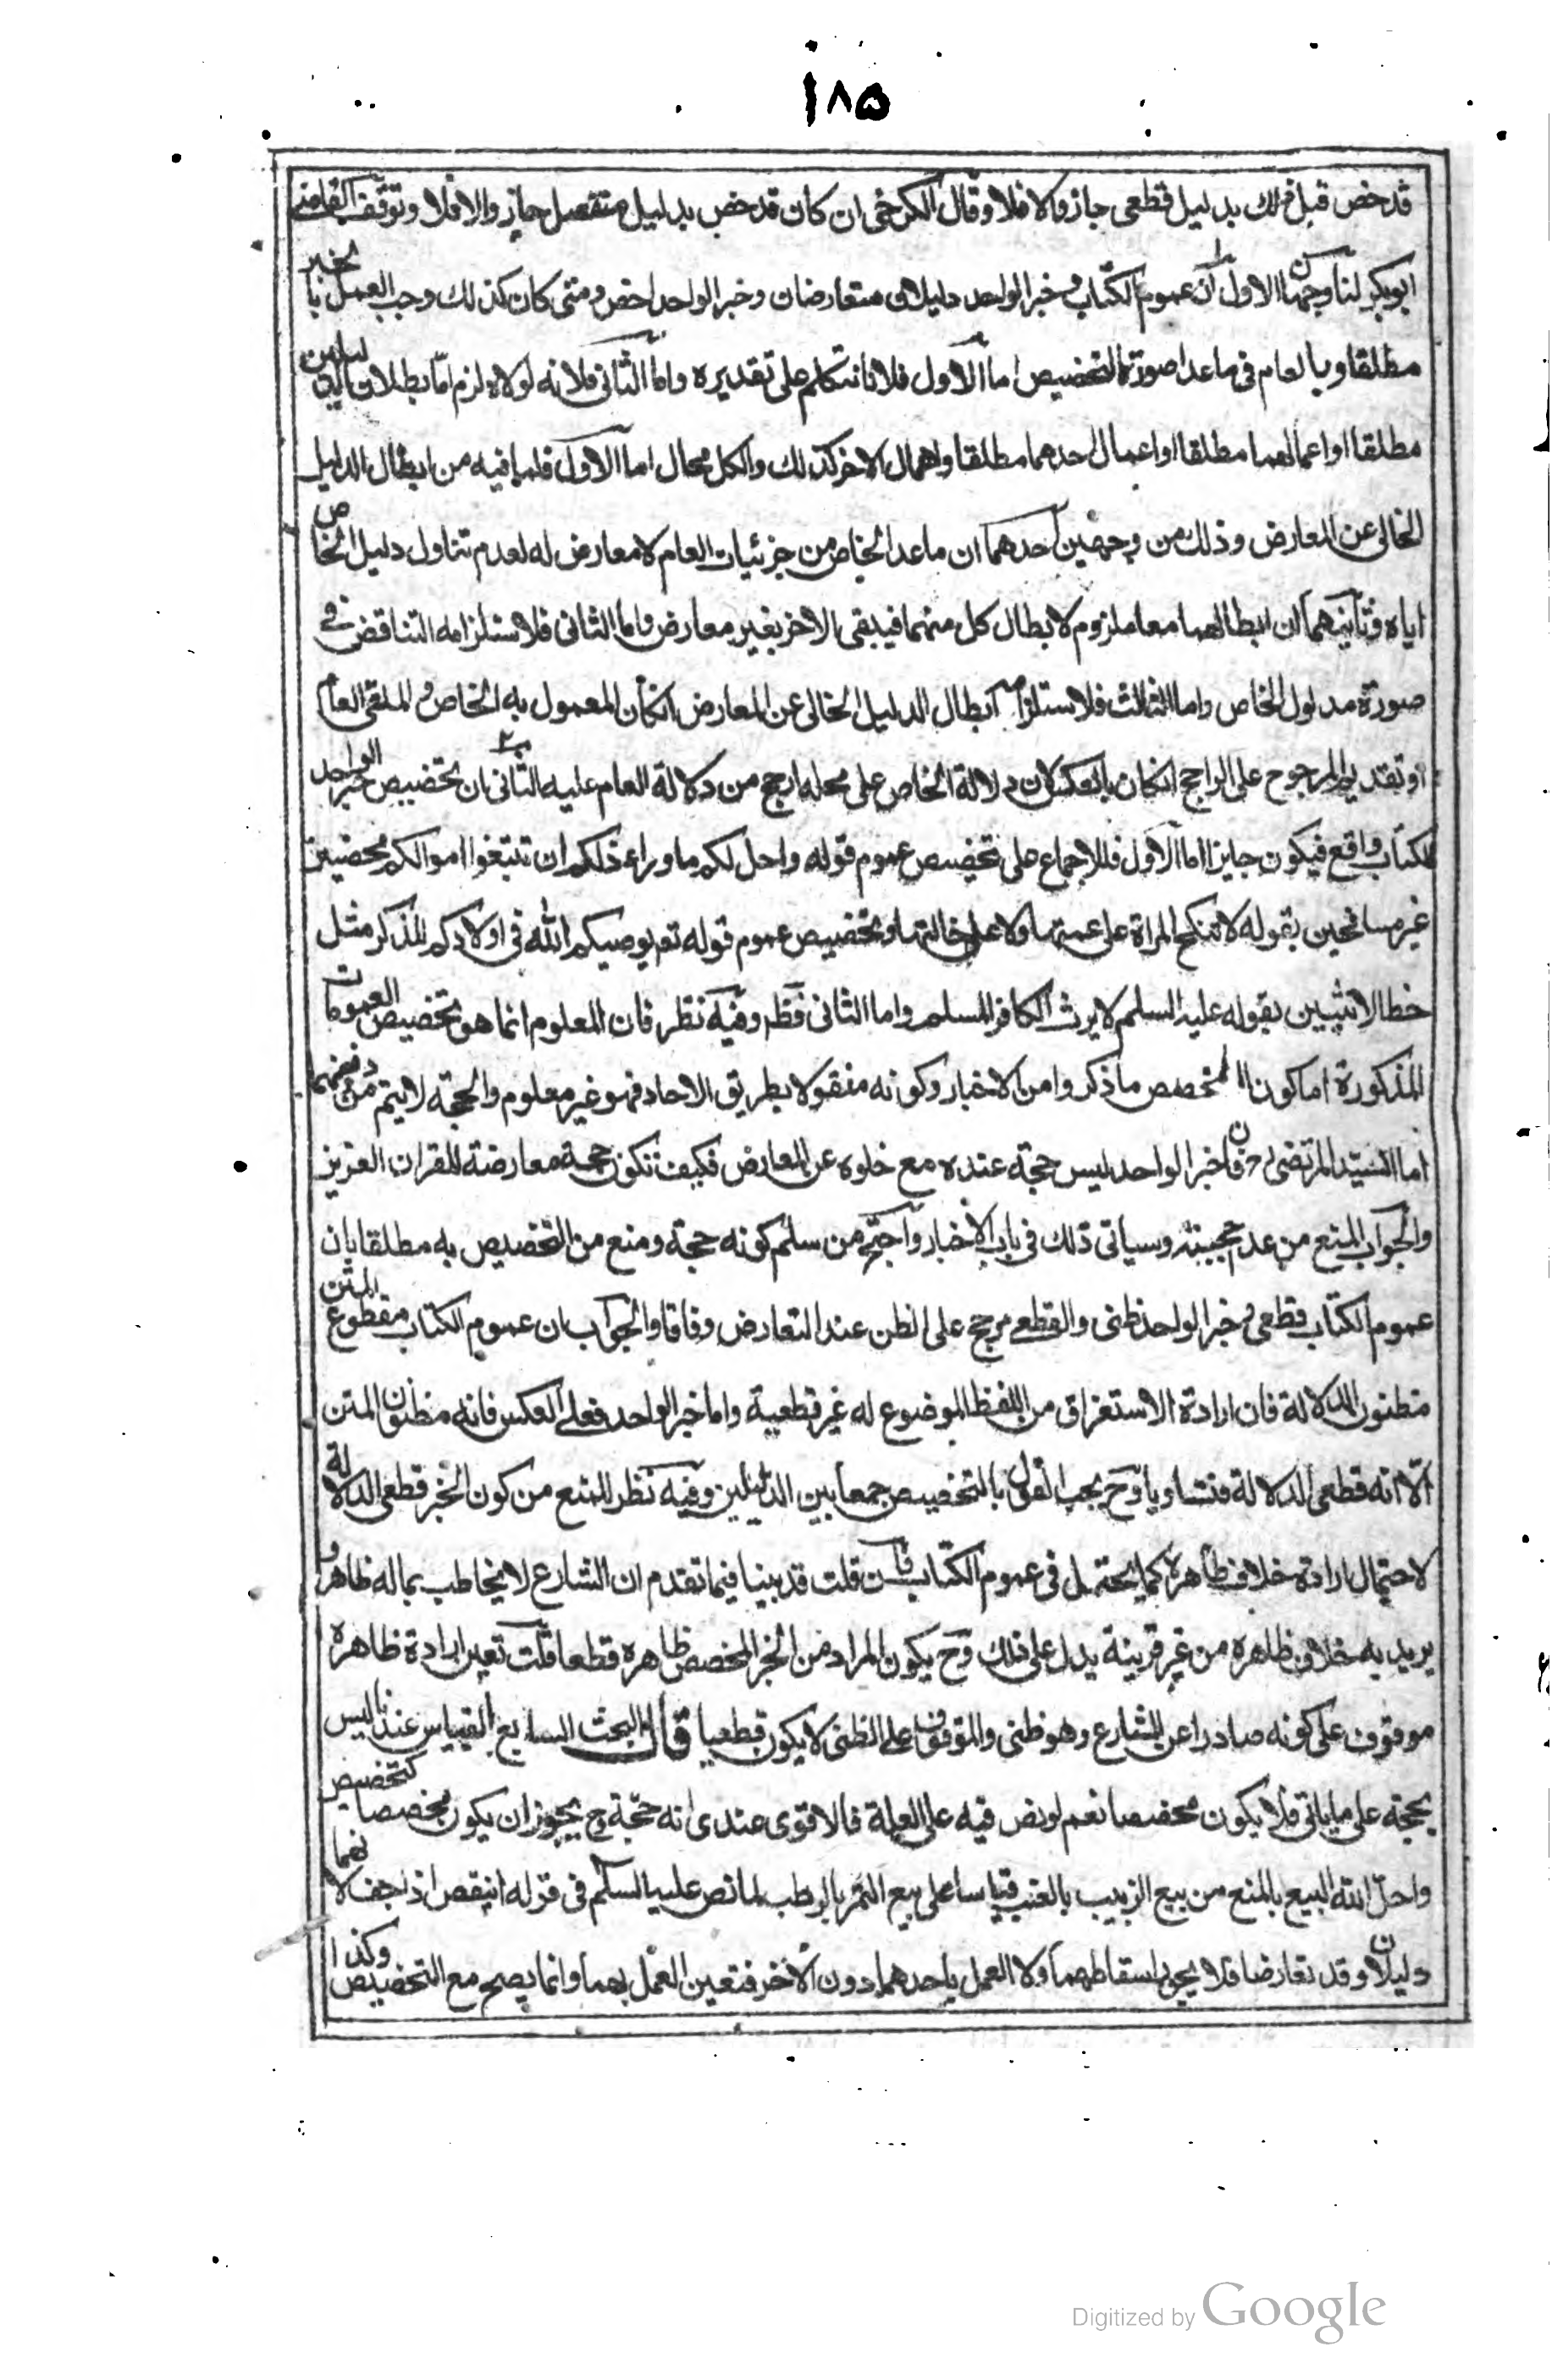 ١٨۵
قد خص قبل ذلك بدليل قطعي جاز والا فلا وقال الكرخي ان كان قد خص بدليل منفصل جاز والا فلا وتوقف القاضي
ابوبكر لنا وجهان الاول ان عموم الكتاب وخبر الواحد دليلان متعارضان وخبر الواحد اخص ومتى كان كذلك وجب العمل بالخبر
مطلقا وبالعام في ما عدا صورة التخصيص اما الاول فلانا نتكلم على تقديره واما الثاني فلانه لولاه لزم اما بطلان الدليلين
مطلقا او اعمالهما مطلقا او اعمال احدهما مطلقا واهمال الاخر كذلك والكل محال اما الاول فلما فيه من ابطال الدليل
الخالى عن المعارض وذلك من وجهين احدهما ان ما عدا الخاص من جزئيات العام لا معارض له لعدم تناول دليل الخاص
اياه وثانيهما ان ابطالهما معا ملزوم لابطال كل منهما فيبقى الاخر بغير معارض واما الثانى فلاستلزامه التناقض في
صورة مدلول الخاص واما الثالث فلاستلزامه ابطال الدليل الخالى عن المعارض انكان المعمول به الخاص والملقى العام
او تقديم المرجوح على الراجح انكان بالعكس لان دلالة الخاص على محله ارجح من دلالة العام عليه الثانى ان تخصيص خبر الواحد
للكتاب واقع فيكون جايزا اما الاول فللاجماع على تخصيص عموم قوله واحل لكم ما وراء ذلكم ان تبتغوا اموالكم محصنين
غير مسافحين بقوله لا تنكح المراة على عمتها ولا على خالتها وتخصيص عموم قوله تع يوصيكم الله فى اولادكم للذكر مثل
حظ الانثيين بقوله عليه السلم لا يرث الكافر المسلم واما الثانى فظ وفيه نظر فان المعلوم انما هو تخصيص العمومات
المذكورة اما كون المخصص ما ذكروا من الاخبار وكونه منقولا بطريق الاحاد فهو غير معلوم والحجة لا يتم من دونهما
اما السيد المرتضى ره فان خبر الواحد ليس حجة عنده مع خلوه عن المعارض فكيف تكون حجة معارضة للقران العزيز
والجواب المنع من عدم حجيته وسياتى ذلك فى باب الاخبار واحتج من سلم كونه حجة ومنع من التخصيص به مطلقا بان
عموم الكتاب قطعى وخبر الواحد ظنى والقطعي مرجح على الظن عند التعارض وفاقا والجواب ان عموم الكتاب مقطوع المتن
مظنون الدلالة فان ارادة الاستغراق من اللفظ الموضوع له غير قطعية واما خبر الواحد فعلى العكس فانه مظنون المتن
الا انه قطعى الدلالة فتساويا وح يجب القول بالتخصيص جمعا بين الدليلين وفيه نظر للمنع من كون الخبر قطعى الدلالة
لاحتمال ارادة خلاف ظاهره كما يحتمل فى عموم الكتاب فان قلت قد بينا فيما تقدم ان الشارع لا يخاطب بما له ظاهر و
يريد به خلاف ظاهره من غير قرينة يدل على ذلك وح يكون المراد من الخبر المخصص ظاهره قطعا قلت تعين ارادة ظاهره
موقوف على كونه صادرا عن الشارع وهو ظنى والموقوف على الظنى لا يكون قطعيا قال البحث السابع القياس عندنا ليس
بحجة على ما ياتى فلا يكون مخصصا نعم لو نص فيه على العلة فالاقوى عندى انه حجة وح يجوز ان يكون مخصصا كتخصيص
واحل الله البيع بالمنع من بيع الزبيب بالعنب قياسا على بيع التمر بالرطب لما نص عليه السلم فى قوله اينقص اذا جف لانهما
دليلان وقد تعارضا فلا يجوز اسقاطهما ولا العمل باحدهما دون الاخر فتعين العمل بهما وانما يصح مع التخصيص وكذا
Digitized by Google